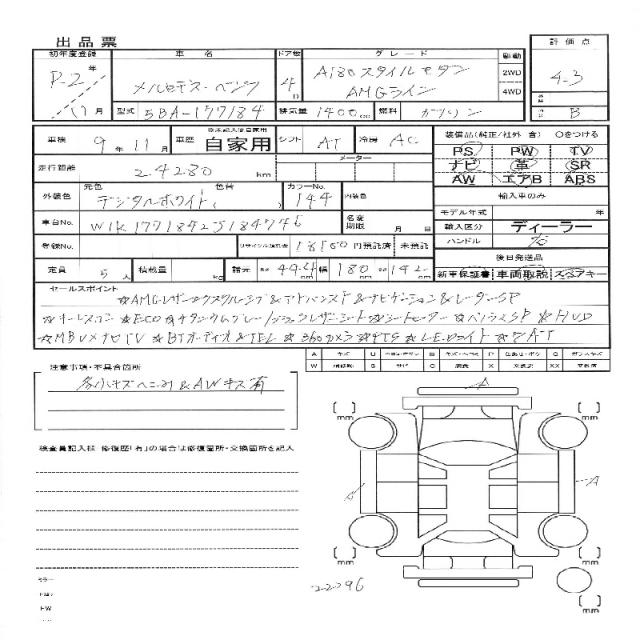 出品票
初年度登録 車名 ドア数 グレード 駆動 評価点
R-2年 メルセデス・ベンツ 4D A180スタイルセダン 2WD 4-3
AMGライン 4WD
11月 型式 5BA-177184 排気量 1400cc 燃料 ガソリン B
車検 9年11月 車歴 自家用 シフト AT 冷房 AC 装備品(純正/社外 含) ○をつける
PS PW TV
走行距離 24280 km メーター ナビ 革 SR
AW エアB ABS
外装色 元色 デジタルホワイト 色替 ( ) カラーNo. 144 内装色 輸入車のみ
モデル年式 年
車台No. W1K1771842J184746 名変期限 月 日 輸入区分 ディーラー
登録No. リサイクル預託金 18160円預託済 未預託 ハンドル 右
後日発送品
定員 5人 積載量 kg 諸元 長さ 494 幅 180 高 142 cm 新車保証書 車両取説 スペアキー
セールスポイント
☆AMGレザーエクスクルーシブ&アドバンスド&ナビゲーション&レーダーSP
☆キーレスゴー ☆ECO ☆ ☆シートヒーター ☆ ☆HUD
☆MBUXナビTV ☆BTオーディオ&TEL ☆360カメラ ☆PTS ☆LEDライト ☆7AT
A キズ U B P C
W S サビ X XX
注意事項・不具合箇所
多小キズヘコミ&AWキズ有
A
mm mm
検査員記入欄 修復歴「有」の場合は修復箇所・交換箇所を記入
A
mm mm
22296